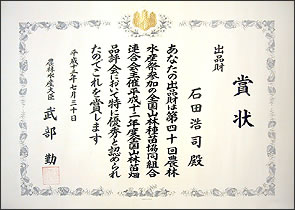 賞状
出品財
石田浩司殿
あなたの出品財は第四十回農林
水産祭参加の全国山林種苗協同組合
連合会主催平成十二年度全国山林苗畑
品評会において特に優秀と認められ
たのでこれを賞します
平成十三年七月三十日
農林水産大臣 武部勤